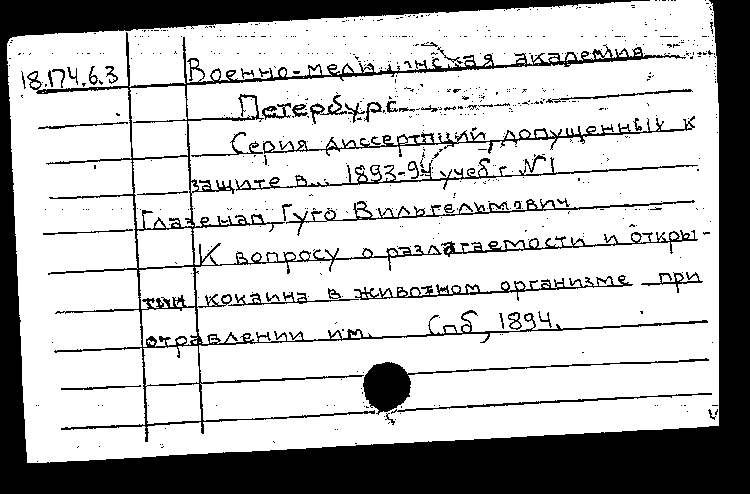 18.174.6.3 Военно-медицинская академия
Петербург
Серия диссертаций, допущенных к
защите в... 1893-94 учеб г №1
Глаземап, Гуго Вильгельмович
К вопросу о разлагаемости и откры-
тии кокаина в животном организме при
отравлении им. Спб, 1894.